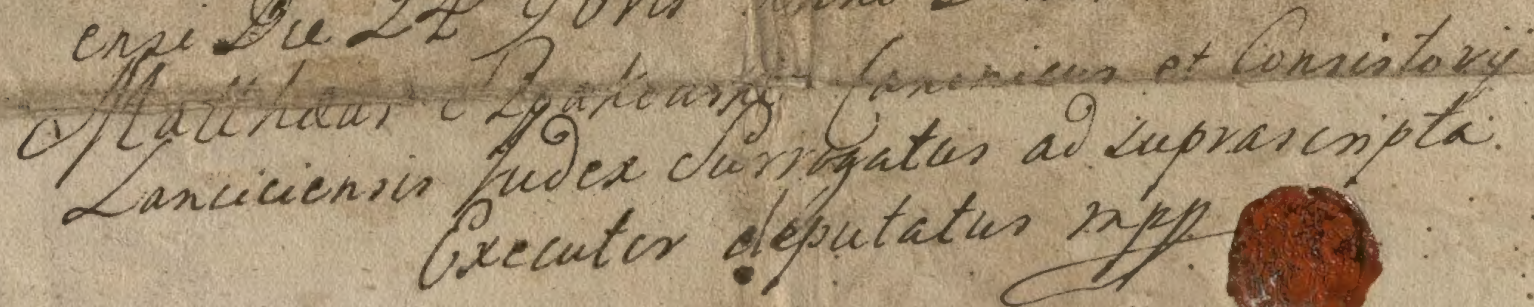 ensi Die 24 9bris Anno
Matthæus Canonicus et Consistorij
Lanciciensis Judex Surrogatus ad suprascripta.
Executor deputatus mpp